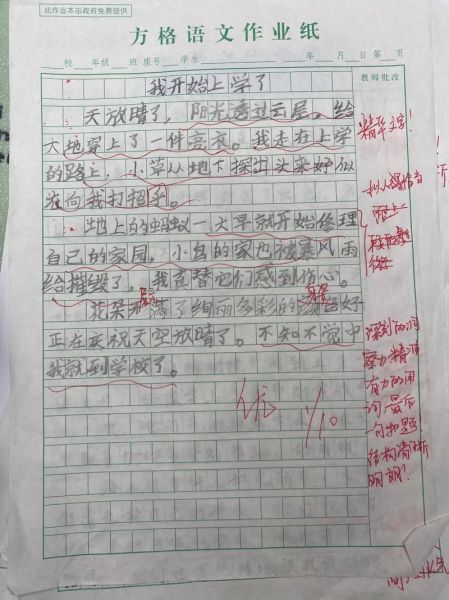 此作业本由政府免费提供
方格语文作业纸
校 年级 班 座号 学生 年 月 日 第 页
教师批改
我开始上学了
天放晴了，阳光透过云层。给
大地穿上了一件亮衣。我走在上学
的路上，小草从地下探出头来好似
在向我打招手。
地上的蚂蚁一大早就开始修理
自己的家园，小鸟的家也被暴风雨
给摧毁了，我真替它们感到伤心。
花朵 满了绚丽多彩的颜色好
正在庆祝天空放晴了。不知不觉中
我就到学校了。
精华文字！
深刻的洞
察力精准
有力的用
词，最后
一句扣题！
结构清晰
明朗！
优
1/10